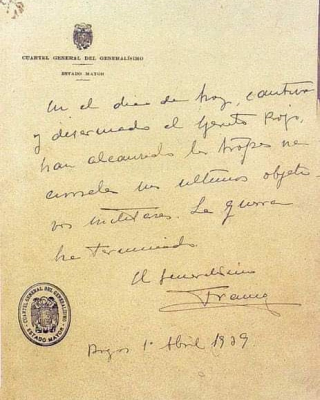 CUARTEL GENERAL DEL GENERALÍSIMO
ESTADO MAYOR
En el dia de hoy, cautivo
y desarmado el Ejercito Rojo,
han alcanzado las tropas na-
cionales sus ultimos objeti-
vos militares. La guerra
ha terminado
El Generalisimo
Franco
Burgos 1º Abril 1939
CUARTEL GENERAL DEL GENERALISIMO
ESTADO MAYOR